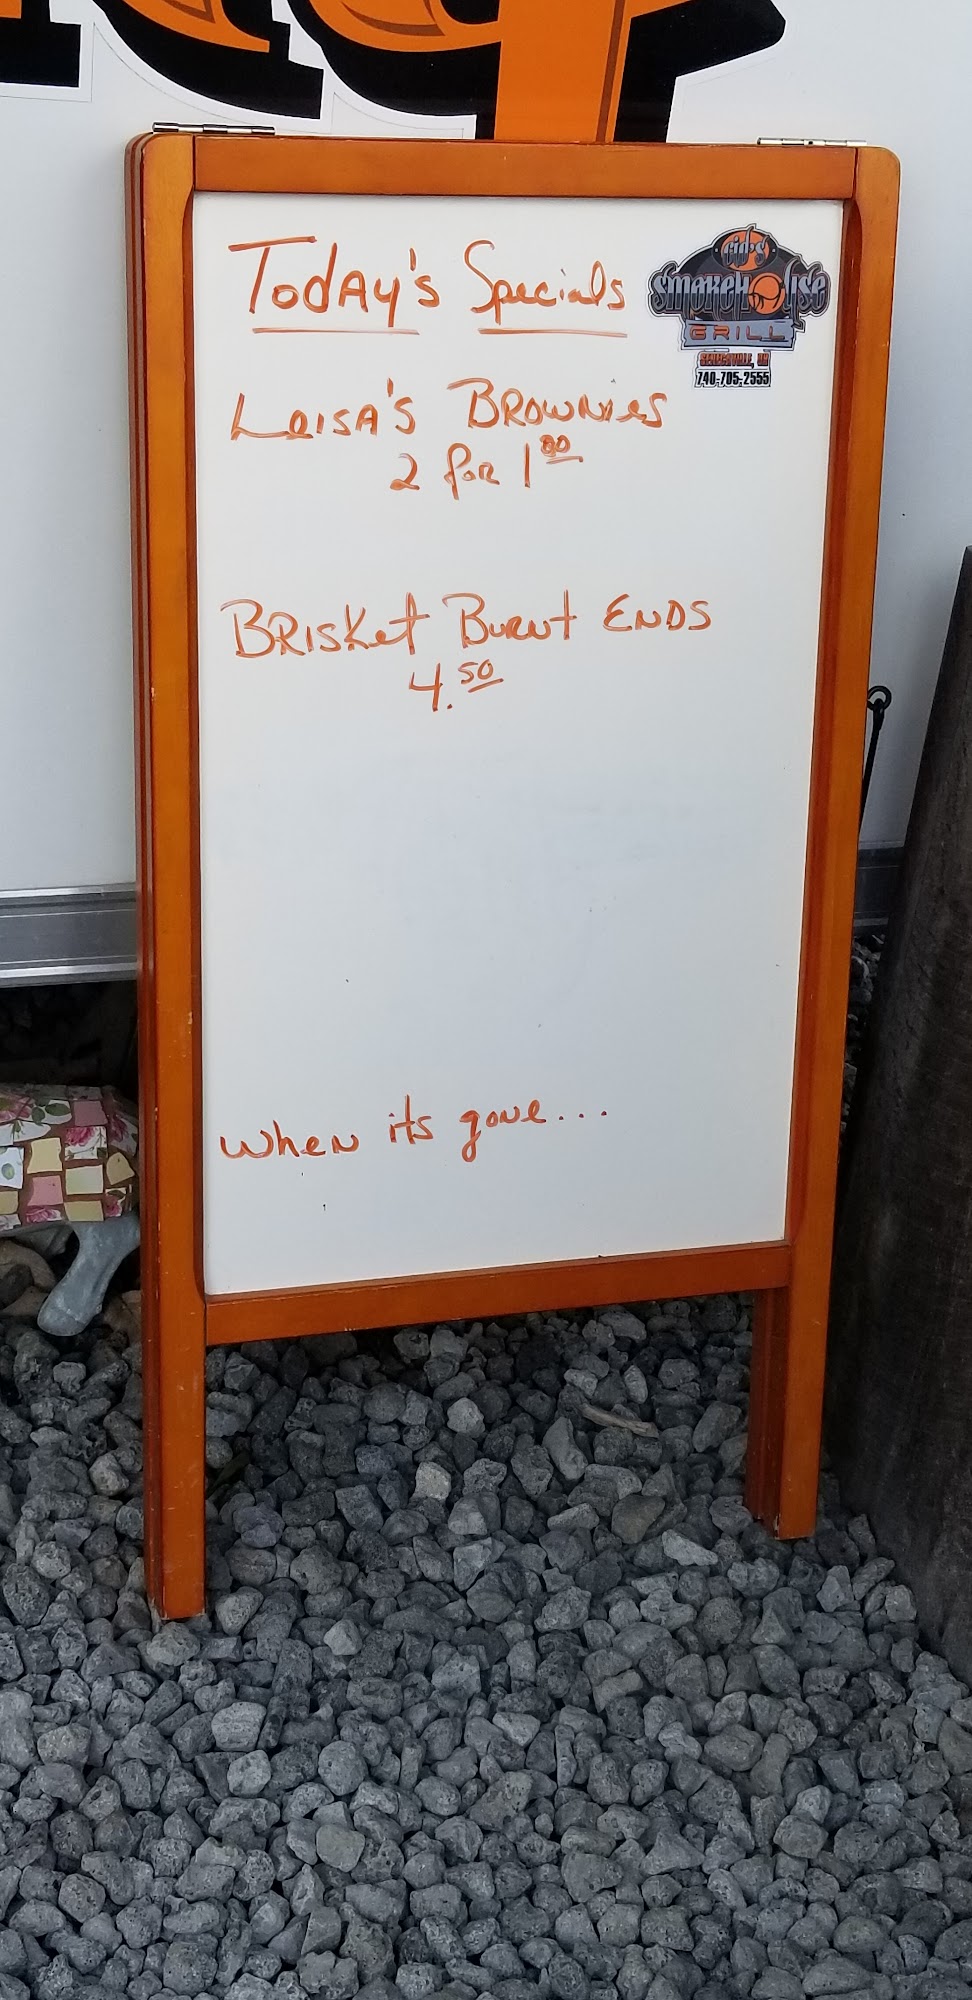 Today's Specials
Cid's
Smokehouse
GRILL
SENECAVILLE, OH
740-705-2555
Leisa's Brownies
2 for 1.00
Brisket Burnt Ends
4.50
When its gone...